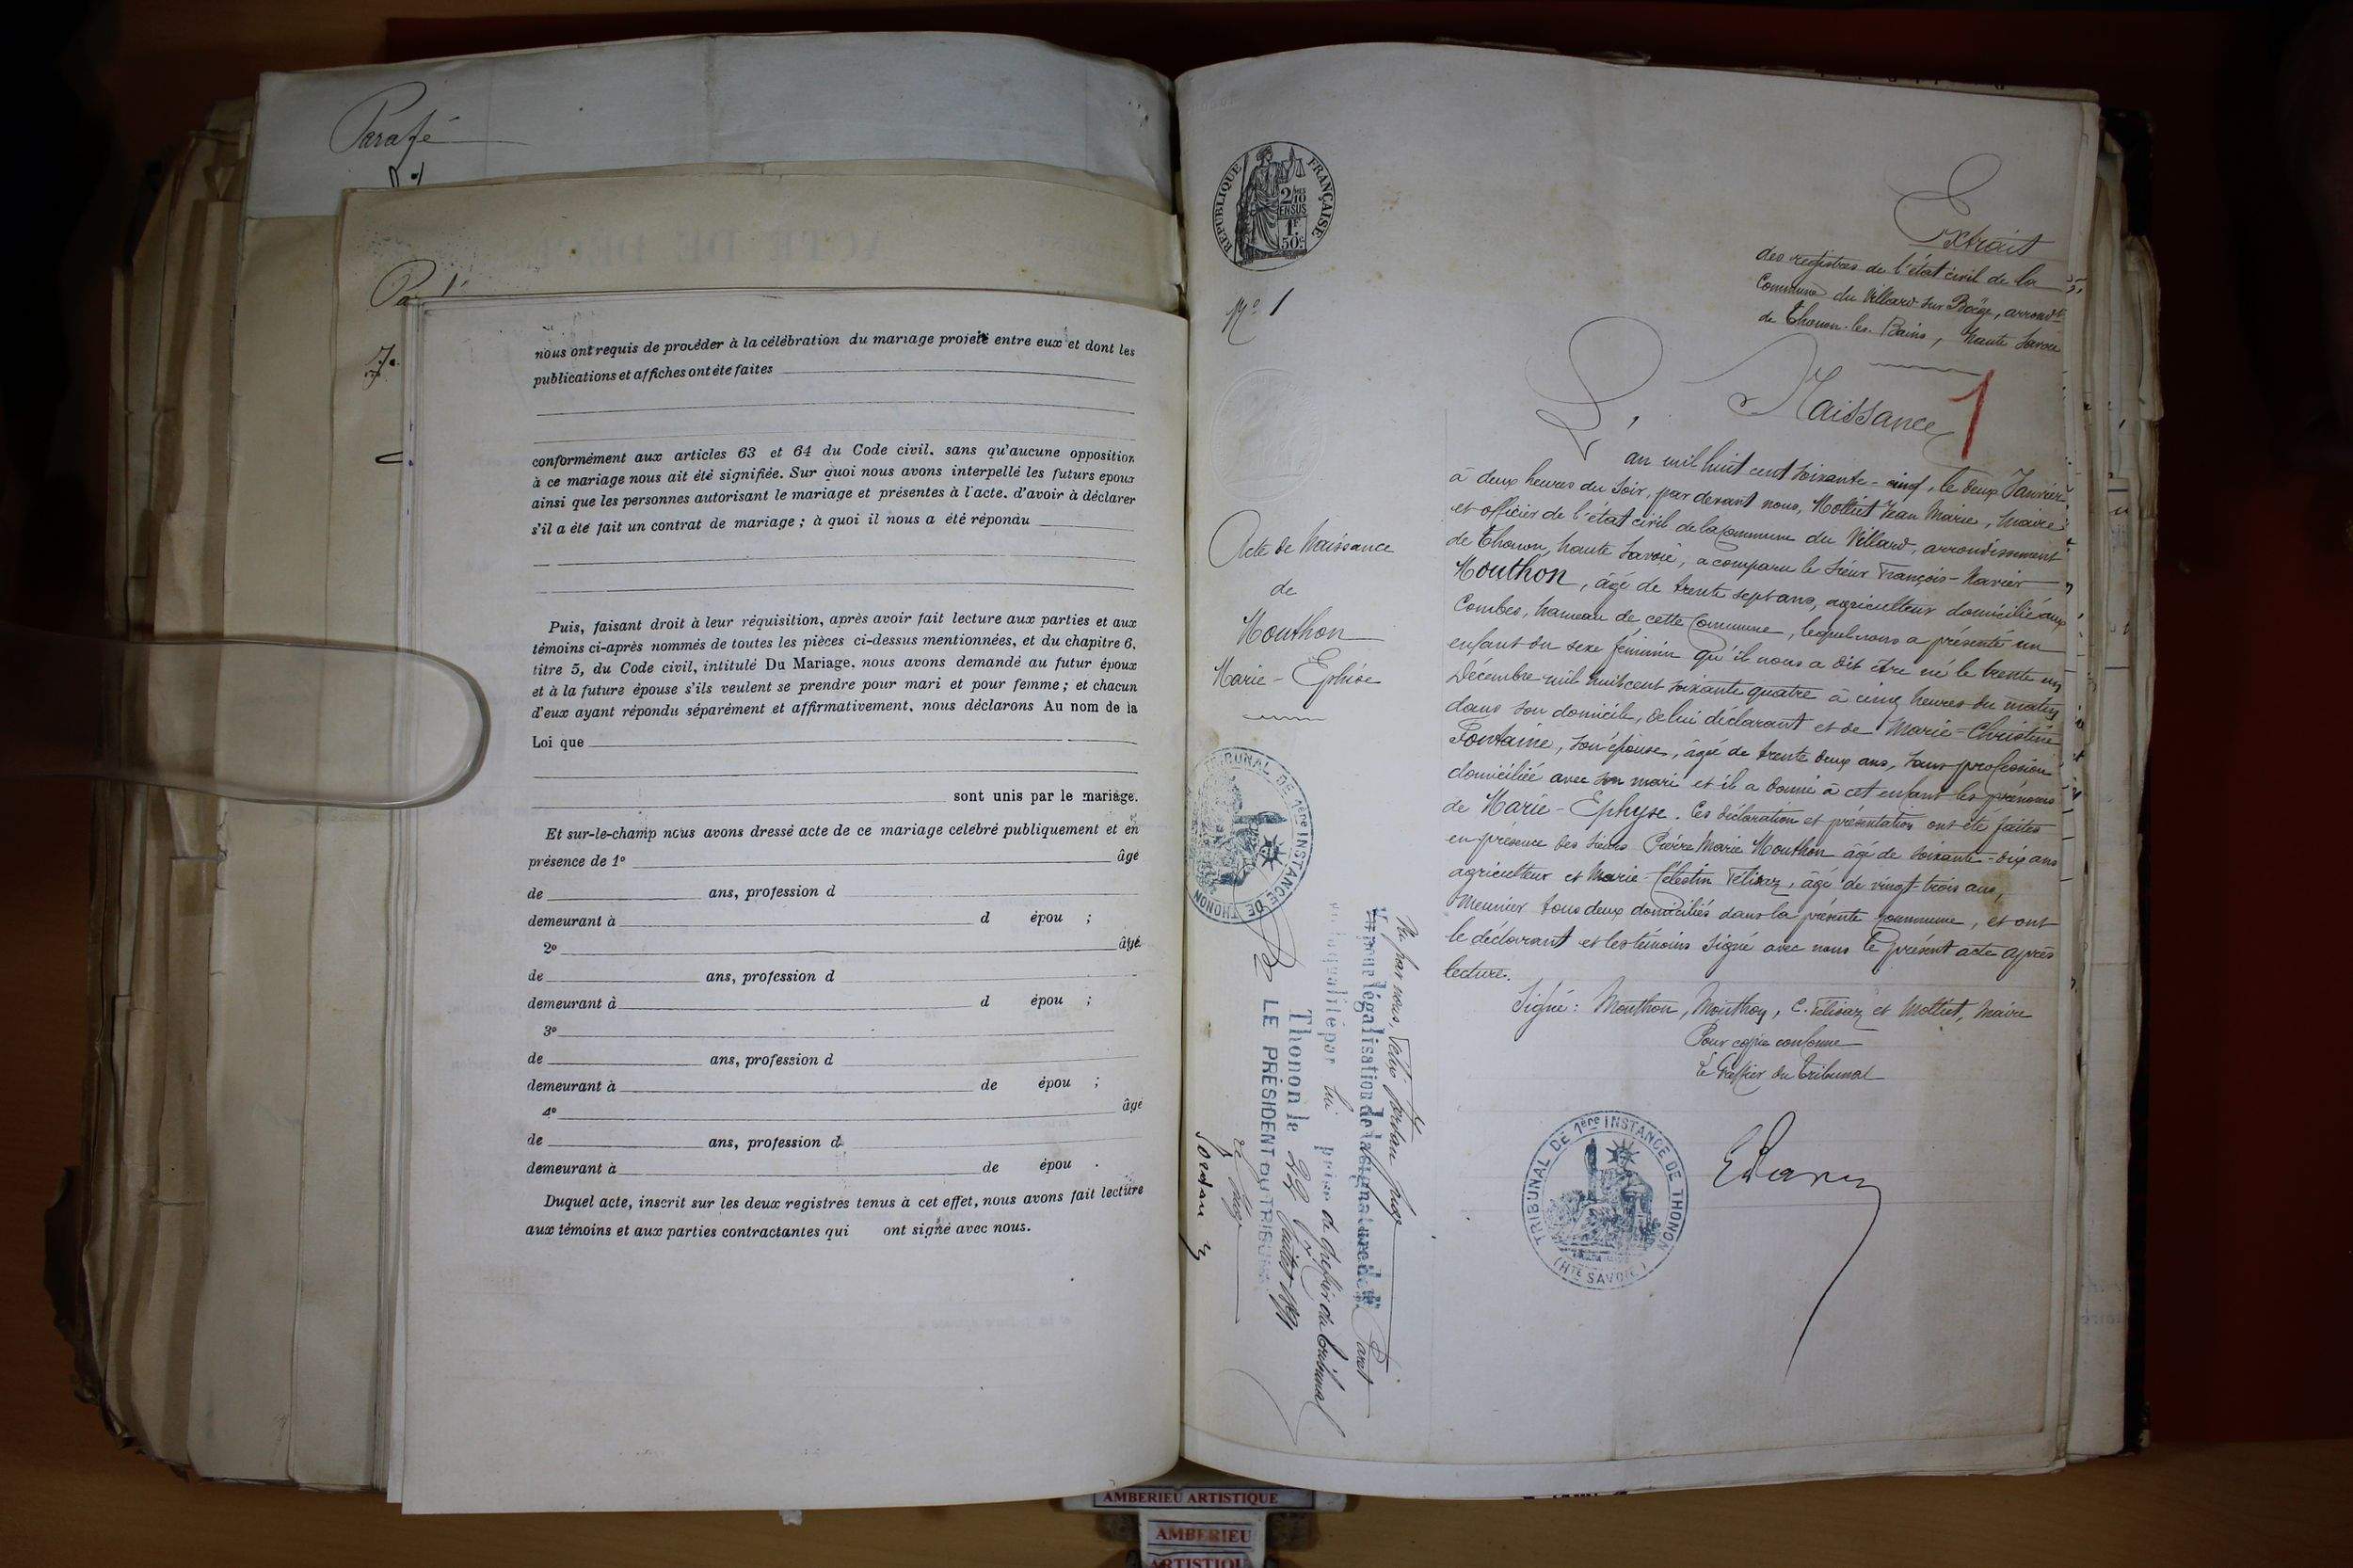 Parafé
nous ont requis de procéder à la célébration du mariage projeté entre eux et dont les
publications et affiches ont été faites
conformément aux articles 63 et 64 du Code civil, sans qu'aucune opposition
à ce mariage nous ait été signifiée. Sur quoi nous avons interpellé les futurs epoux
ainsi que les personnes autorisant le mariage et présentes à l'acte, d'avoir à déclarer
s'il a été fait un contrat de mariage ; à quoi il nous a été répondu
Puis, faisant droit à leur réquisition, après avoir fait lecture aux parties et aux
témoins ci-après nommés de toutes les pièces ci-dessus mentionnées, et du chapitre 6,
titre 5, du Code civil, intitulé Du Mariage, nous avons demandé au futur époux
et à la future épouse s'ils veulent se prendre pour mari et pour femme ; et chacun
d'eux ayant répondu séparément et affirmativement, nous déclarons Au nom de la
Loi que
sont unis par le mariage.
Et sur-le-champ nous avons dressé acte de ce mariage célébré publiquement et en
présence de 1º âgé
de ans, profession d
demeurant à d épou ;
2º âgé
de ans, profession d
demeurant à d épou ;
3º
de ans, profession d
demeurant à de épou ;
4º âgé
de ans, profession d
demeurant à de épou .
Duquel acte, inscrit sur les deux registres tenus à cet effet, nous avons fait lecture
aux témoins et aux parties contractantes qui ont signé avec nous.
REPUBLIQUE FRANÇAISE
2/10 EN SUS
1F 50c
Nº 1
Extrait
des registres de l'état civil de la
Commune du Villard-sur Boëge, arrondt
de Thonon-les-Bains, Haute Savoie
Naissance
1
Acte de Naissance
de
Mouthon
Marie-Ephise
L'an mil huit cent soixante-cinq, le deux Janvier
à deux heures du soir, par devant nous, Molliet Jean Marie, Maire
et officier de l'état civil de la Commune du Villard, arrondissement
de Thonon, haute Savoie, a comparu le sieur François-Xavier
Mouthon, âgé de trente sept ans, agriculteur domicilié aux
Combes, hameau de cette Commune, lequel nous a présenté un
enfant du sexe féminin qu'il nous a dit être né le trente un
Décembre mil huit cent soixante quatre à cinq heures du matin
dans son domicile, de lui déclarant et de Marie-Christine
Fontaine, son épouse, âgée de trente deux ans, sans profession
domiciliée avec son mari et il a donné à cet enfant les prénoms
de Marie-Ephyse. Ces déclaration et présentation ont été faites
en présence des sieurs Pierre Marie Mouthon âgé de soixante-dix ans
agriculteur et Marie-Célestin Félisaz, âgé de vingt-trois ans,
Meunier tous deux domiciliés dans la présente commune, et ont
le déclarant et les témoins signé avec nous le présent acte après
lecture.
Signé : Mouthon, Mouthon, C. Félisaz et Molliet, Maire
Pour copie conforme
Le Greffier du Tribunal
TRIBUNAL DE 1ère INSTANCE DE THONON
(HTE SAVOIE)
TRIBUNAL DE 1ère INSTANCE DE THONON
Vu par nous, Jordan juge
pour légalisation de la signature de M. Paret
qualité par lui prise de Greffier du tribunal
Thonon le 22 Juillet 189
LE PRÉSIDENT DU TRIBUNAL
Le Juge
Jordan
AMBERIEU ARTISTIQUE
AMBERIEU
ARTISTIQUE